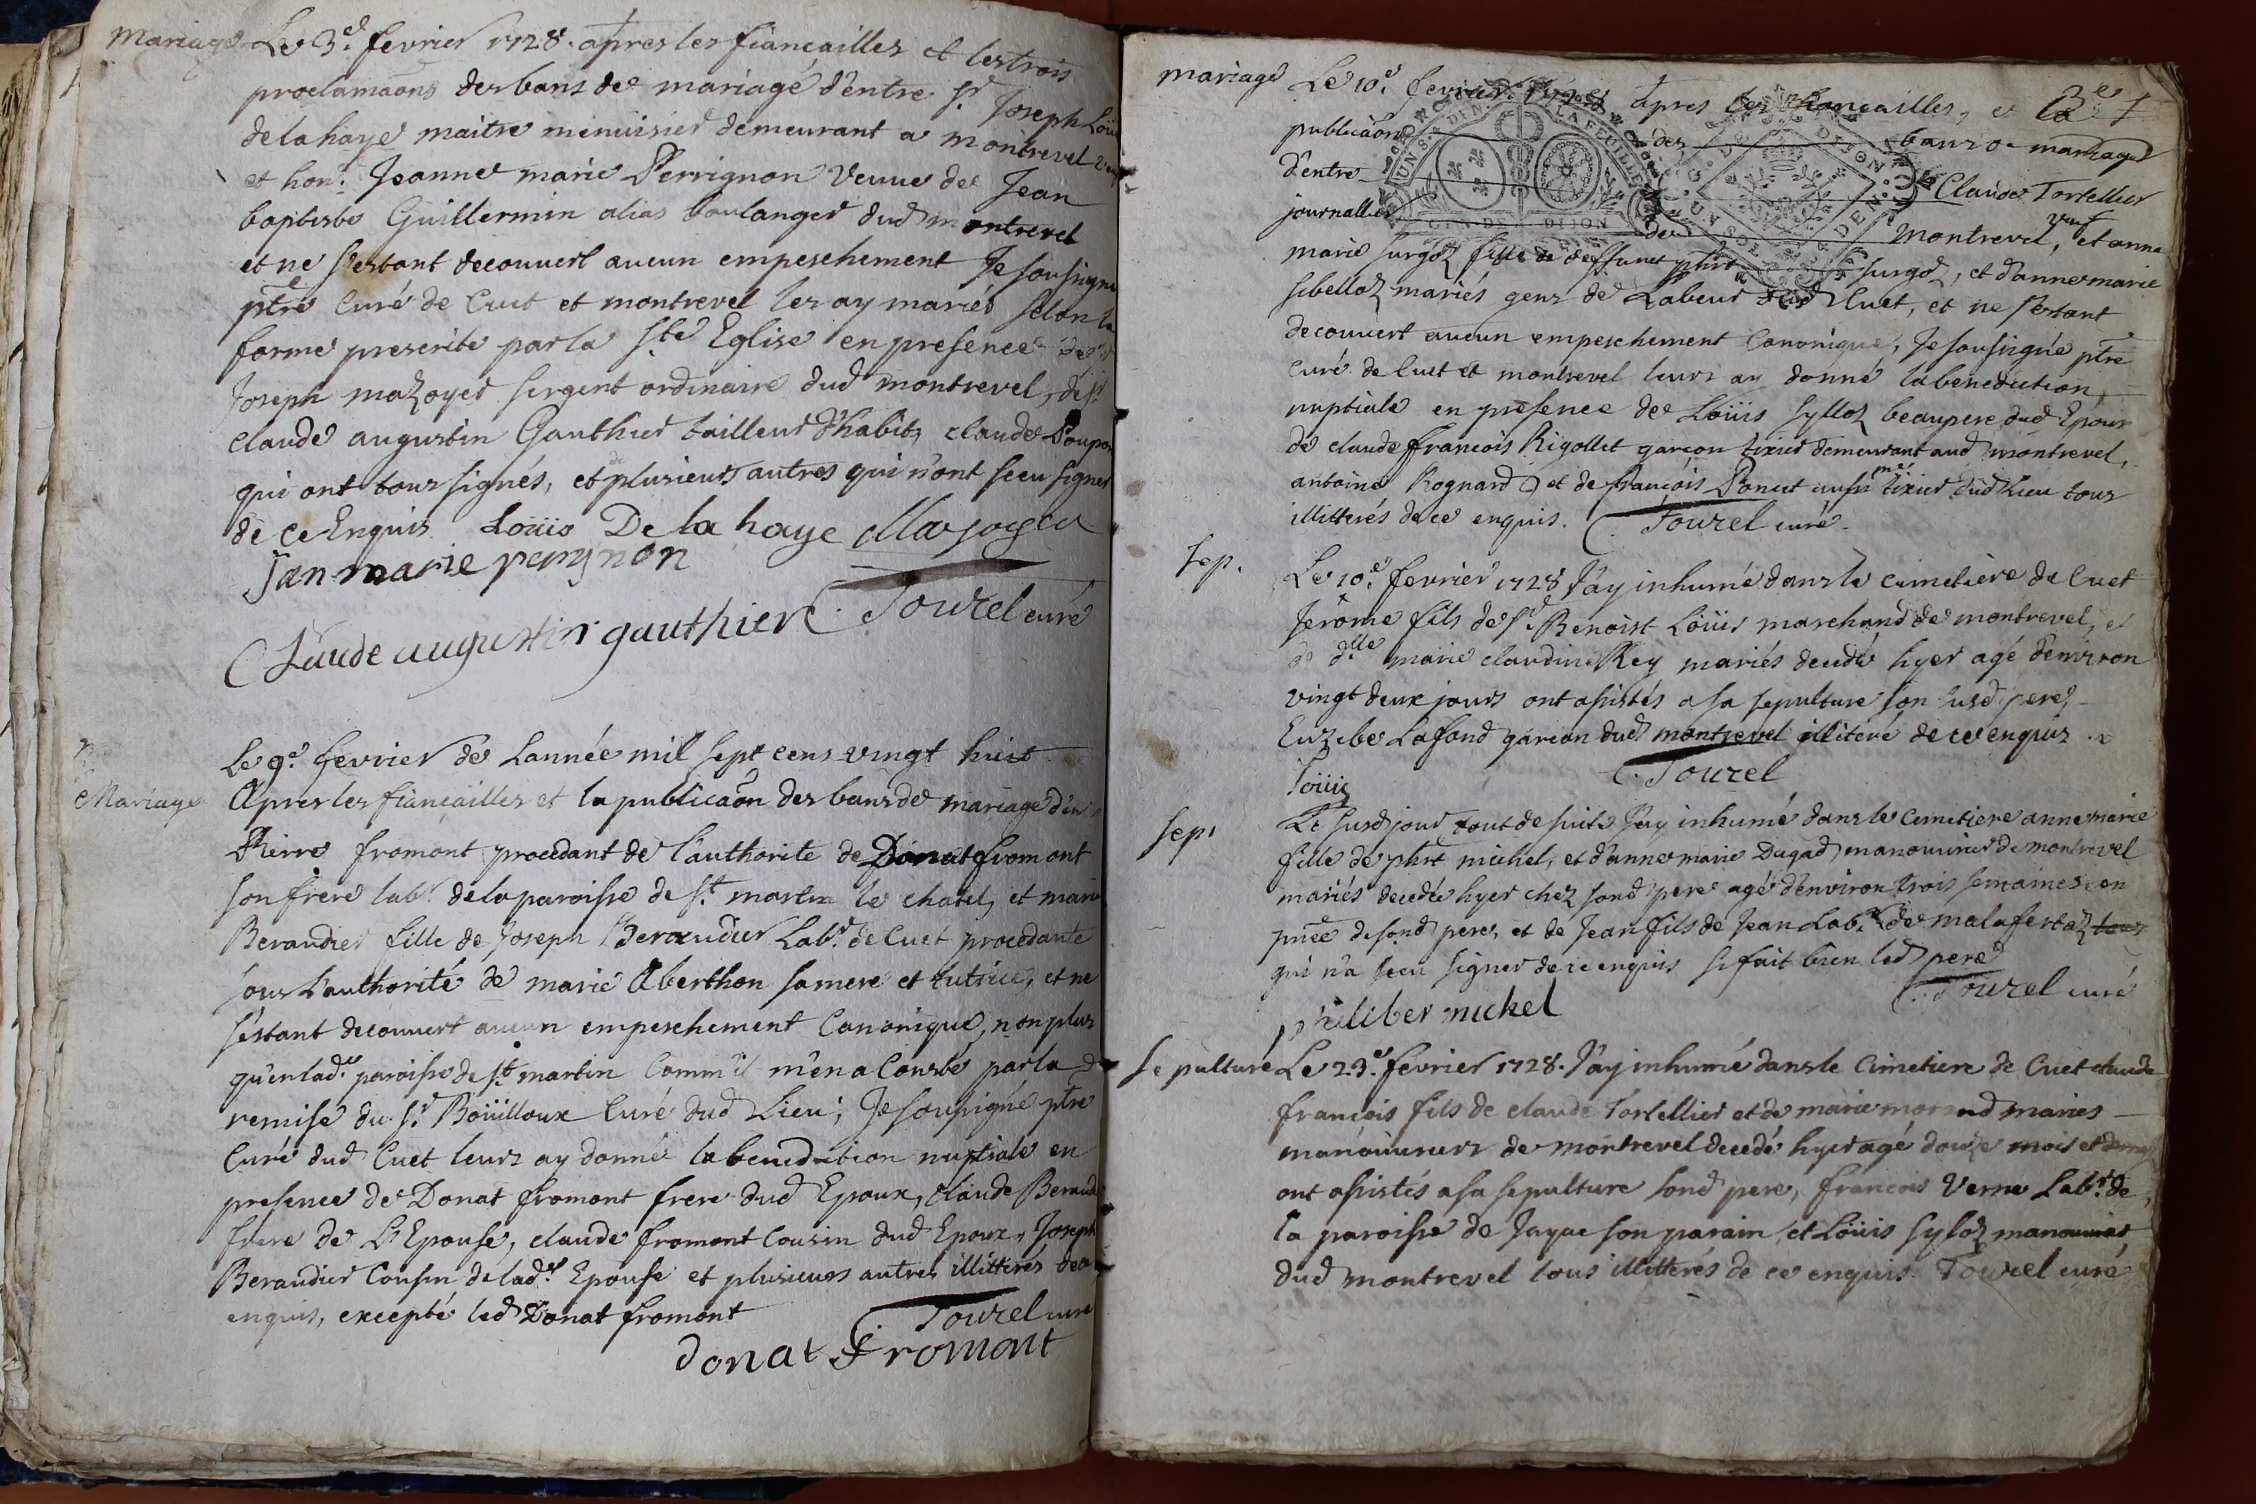 mariage
Le 3.e fevrier 1728. apres les fiancailles et les trois
proclamaõns des bans de mariage d'entre Sr Joseph Loüis
delahaye maitre menuisier demeurant a montrevel
et hon. Jeanne marie Perrignon veuve de Jean
baptiste Guillermin alias boulanger dud montrevel
et ne s'estant decouvert aucun empeschement Je soussigné
ptre Curé de Cuet et montrevel les ay mariés selon la
forme prescrite par la Ste Eglise en presence de
Joseph mazoyer sergent ordinaire dud montrevel, de Sr
claude augustin Gauthier tailleur d'habits claude
qui ont tous signés, et plusieurs autres qui n'ont sceu signer
de ce Enquis Loüis De la haye Mazoyer
Jan marie perignon
C. Tourel curé
Claude augustin gauthier
Mariage
Le 9.e fevrier de Lannée mil sept cens vingt huit
Apres les fiancailles et la publicaõn des bans de mariage
Pierre fromont procedant de l'authorite de Donat fromont
son frere labr de la paroisse de St. martin le chatel, et marie
Beraudier fille de Joseph Beraudier Labr. de Cuet procedante
sous l'authorité de marie Aberthon sa mere et tutrice, et ne
s'estant decouvert aucun empeschement Canonique, non plus
qu'en lade. paroisse de St martin Comm'il m'en a Consté par la
remise du Sr. Boüilloux Curé dud Lieu; Je soussigné ptre
Curé dud Cuet leurs ay donné la benediction nuptiale en
presence de Donat fromont frere dud Epoux, claude
frere de L'Epouse, claude fromont Cousin dud Epoux, Joseph
Beraudier Cousin de lade. Epouse et plusieurs autres illitterés de ce
enquis, excepté led Donat fromont
C. Tourel curé
donat fromont
mariage
Le 10.e fevrier 1728 apres les fiancailles, et la 3e
publicaõn des bans de mariage
d'entre Claude Tortellier
journallier de Montrevel, veuf et anne
marie surgoz fille de deffunct phirt surgoz, et d'anne marie
sibelloz mariés gens de Labeur dud Cuet, et ne s'estant
decouvert aucun empeschement Canonique, Je soussigné ptre
Curé de Cuet et montrevel leurs ay donné la benediction
nuptiale en presence de Loüis sylloz beaupere dud Epoux
de claude ffrancois Rigollet garcon tixier demeurant aud montrevel,
antoine Rognard et de francois Poncet aussi tixier dud Lieu tous
illitterés de ce enquis. C. Tourel curé.
Sep.
Le 10.e fevrier 1728 J'ay inhumé dans le cimetiere de Cuet
Jerôme fils de Sr Benoist Loüis marchand de montrevel, et
de dlle marie claudine Rey mariés decedé hyer agé d'environ
vingt deux jours ont assistés a sa sepulture son susd pere,
Euzebe Lafond garcon dud montrevel illiteré de ce enquis
C. Tourel
Loüis
Sep.
Le susd jour tout de suite J'ay inhumé dans le Cimetiere anne marie
fille de phirt michel, et d'anne marie Dugad manouvrier de montrevel
mariés decedée hyer chez sond pere agé d'environ trois semaines en
pnce de sond pere, et de Jean fils de Jean Labr. de malafertaz tous
qui n'a sceu signer de ce enquis se fait bien led pere
C. Tourel curé
philiber michel
Sepulture
Le 23.e fevrier 1728. J'ay inhumé dans le Cimetiere de Cuet claude
francois fils de claude Tortellier et de marie morand mariés
manouvriers de montrevel decedé hyer agé douze mois et demy
ont assistés a sa sepulture sond pere, francois Verne Labr. de
la paroisse de Jayac son parain et Loüis syloz manouvrier
dud montrevel tous illitterés de ce enquis Tourel curé